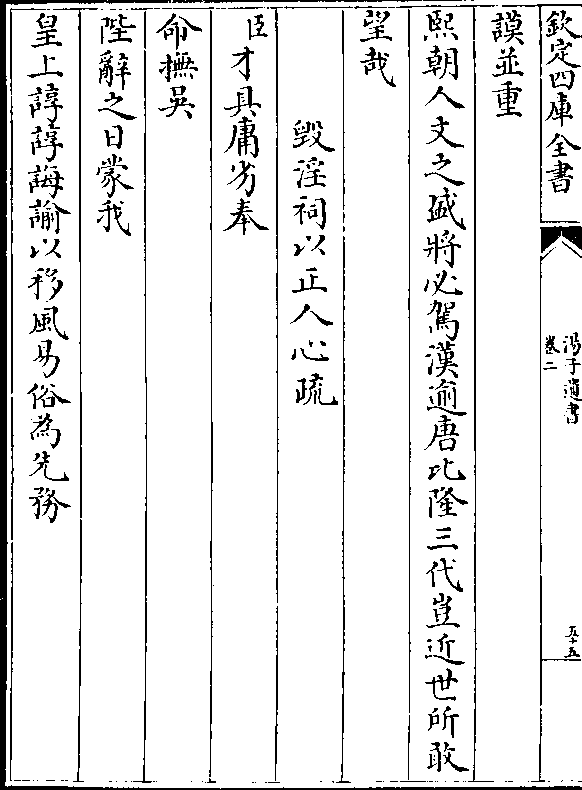 欽定四庫全書
湯子遺書
卷二
五十五
謨並重
熙朝人文之盛將必駕漢逾唐比隆三代豈近世所敢
望哉
毀淫祠以正人心疏
臣才具庸劣奉
命撫吳
陛辭之日蒙我
皇上諄諄誨諭以移風易俗為先務